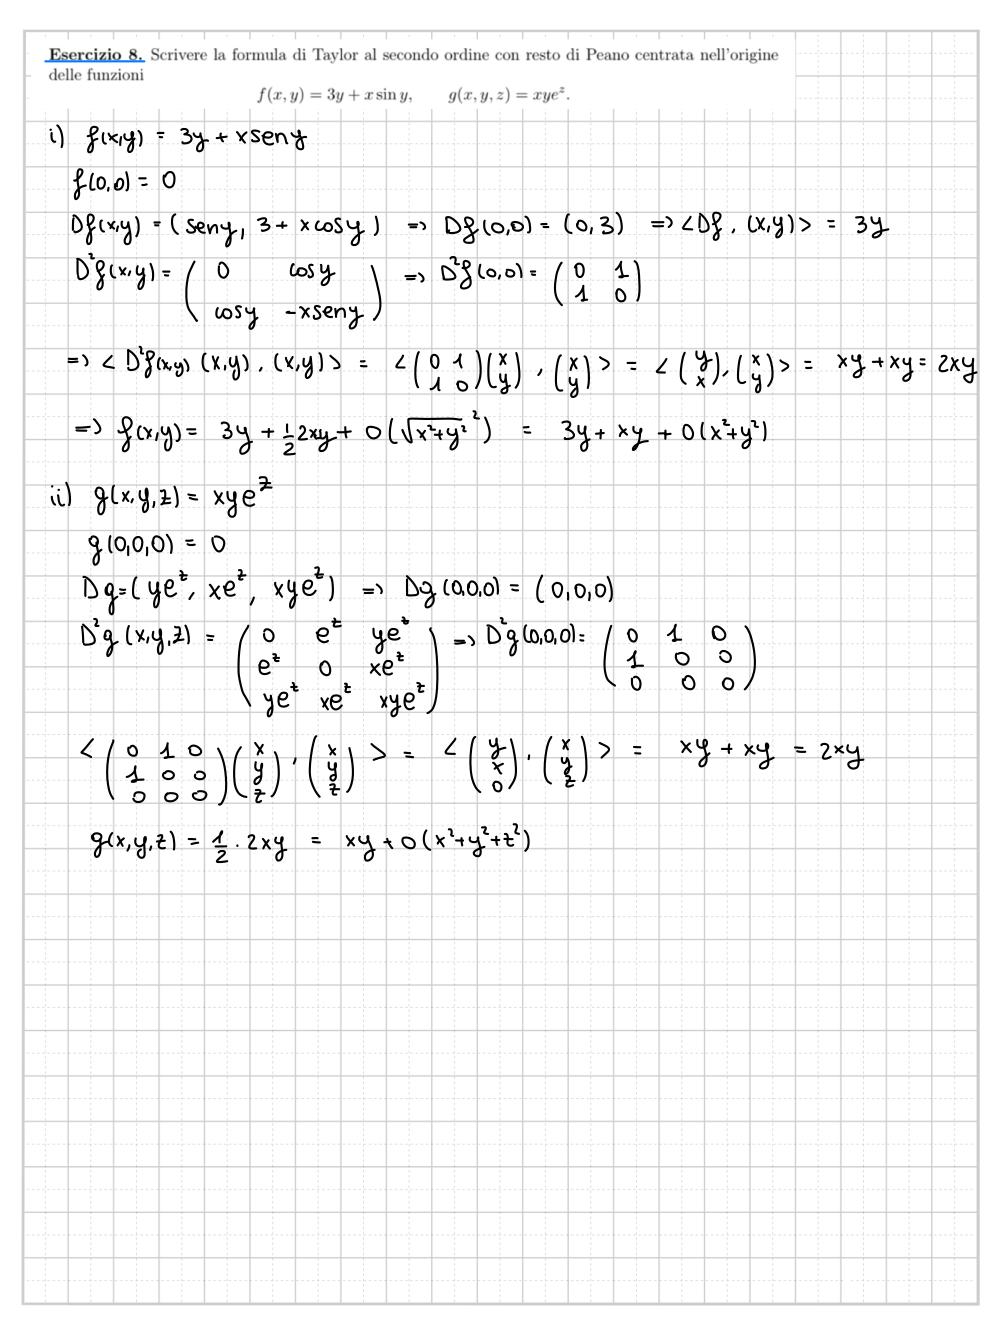 Esercizio 8. Scrivere la formula di Taylor al secondo ordine con resto di Peano centrata nell'origine
delle funzioni
f(x, y) = 3y + x sin y,    g(x, y, z) = xye^z.
i) f(x,y) = 3y + xseny
f(0,0) = 0
Df(x,y) = (seny, 3 + xcosy) => Df(0,0) = (0,3) => <Df, (x,y)> = 3y
D²f(x,y) = (0 cosy
cosy -xseny) => D²f(0,0) = (0 1
1 0)
=> <D²f(x,y) (x,y), (x,y)> = <(0 1
1 0)(x
y), (x
y)> = <(y
x), (x
y)> = xy + xy = 2xy
=> f(x,y) = 3y + 1/2 2xy + o(√x²+y² ²) = 3y + xy + o(x²+y²)
ii) g(x,y,z) = xye^z
g(0,0,0) = 0
Dg = (ye^z, xe^z, xye^z) => Dg(0,0,0) = (0,0,0)
D²g(x,y,z) = (0 e^z ye^z
e^z 0 xe^z
ye^z xe^z xye^z) => D²g(0,0,0) = (0 1 0
1 0 0
0 0 0)
<(0 1 0
1 0 0
0 0 0)(x
y
z), (x
y
z)> = <(y
x
0), (x
y
z)> = xy + xy = 2xy
g(x,y,z) = 1/2 · 2xy = xy + o(x²+y²+z²)